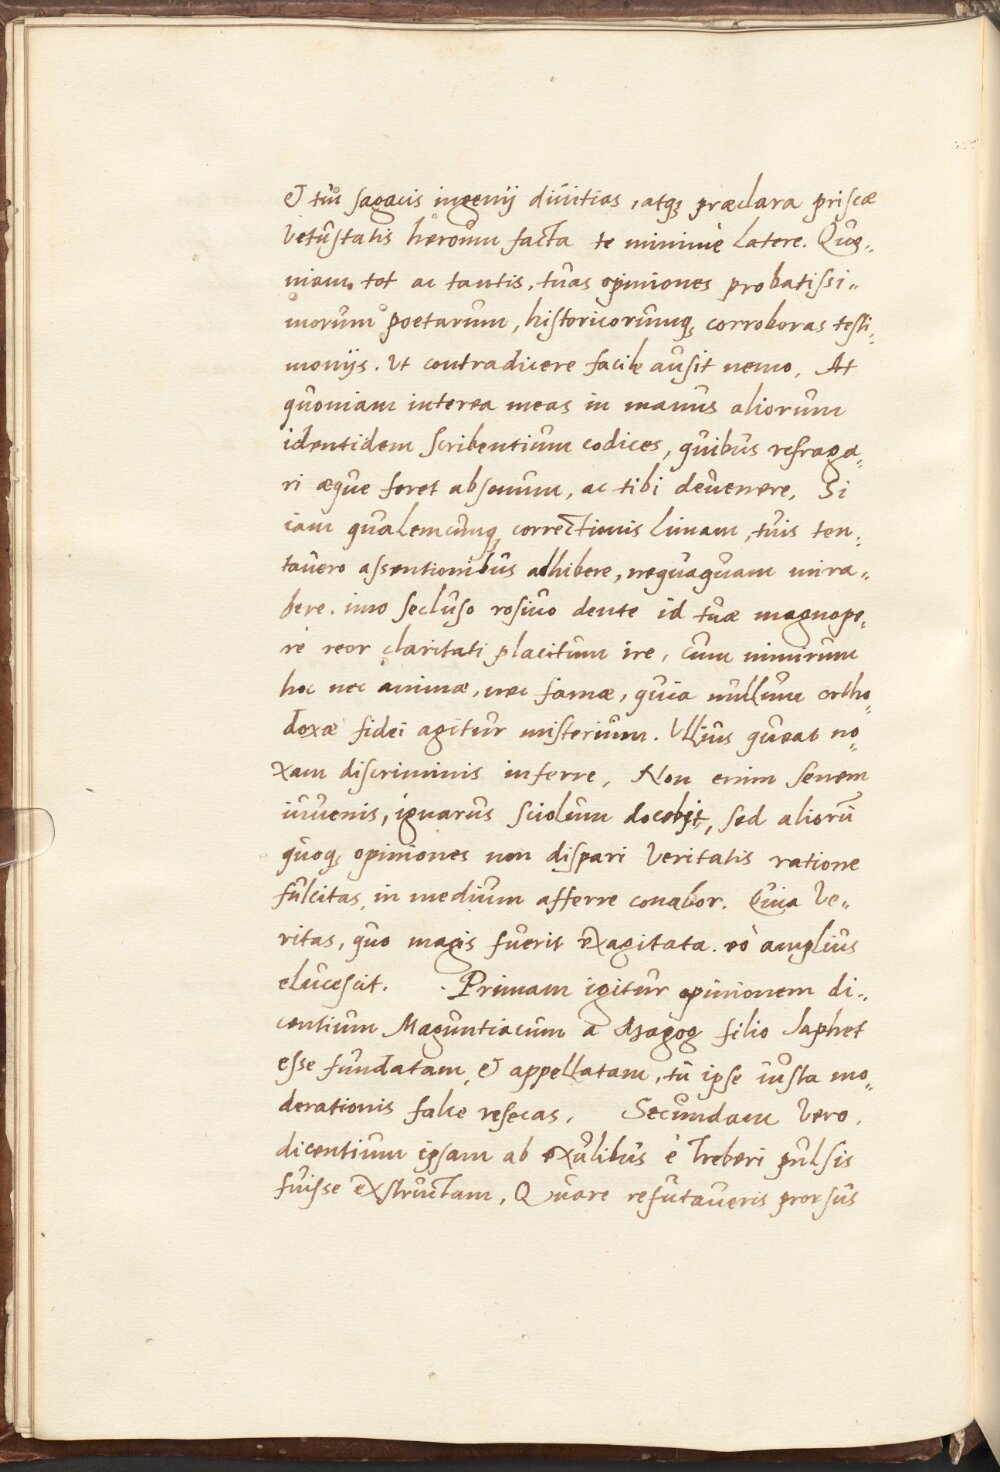 & tui sagacis ingenij divitias, atq; præclara priscæ
vetustatis heroum facta te minime latere. Quo„
niam tot ac tantis, tuas opiniones probatissi„
morum poetarum, historicorumq; corroboras testi„
monijs. Ut contradicere facile ausit nemo, At
quoniam interea meas in manus aliorum
identidem scribentium codices, quibus refraga„
ri æque foret absonum, ac tibi devenere, Si
iam qualemcunq; correctionis limam, tuis ten„
tavero assentionibus adhibere, nequaquam mira„
bere. imo secluso rosivo dente id tuæ magnope„
re reor claritati placitum ire, cum nimirum
hoc nec animæ, nec famæ, quia nullum ortho„
doxæ fidei agitur misterium. Ullius queat no„
xam discriminis inferre, Non enim senem
iuvenis, ignarus sciolum docebit, sed aliorū
quoq; opiniones non dispari veritatis ratione
fulcitas, in medium afferre conabor. Quia ve„
ritas, quo magis fuerit exagitata. eò amplius
elucescit. Primam igitur opinionem di„
centium Maguntiacum a Magog filio Japhet
esse fundatam, & appellatam, tu ipse iusta mo„
derationis falce resecas, Secundam vero.
dicentium ipsam ab exulibus è Treberi pulsis
fuisse exstructam, Quare refutaveris prorsus